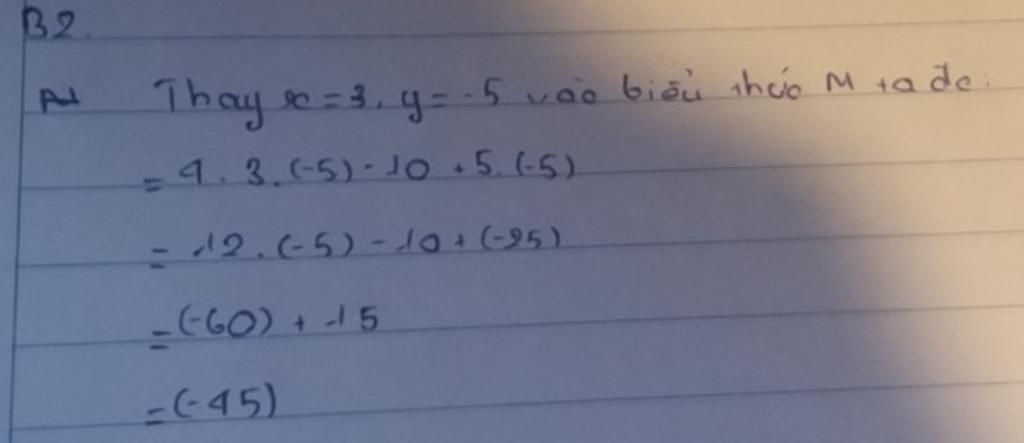 B2.
A Thay x = 3, y = -5 vào biểu thức M ta đc:
= 4 . 3 . (-5) - 10 + 5 . (-5)
= 12 . (-5) - 10 + (-25)
= (-60) + 15
= (-45)